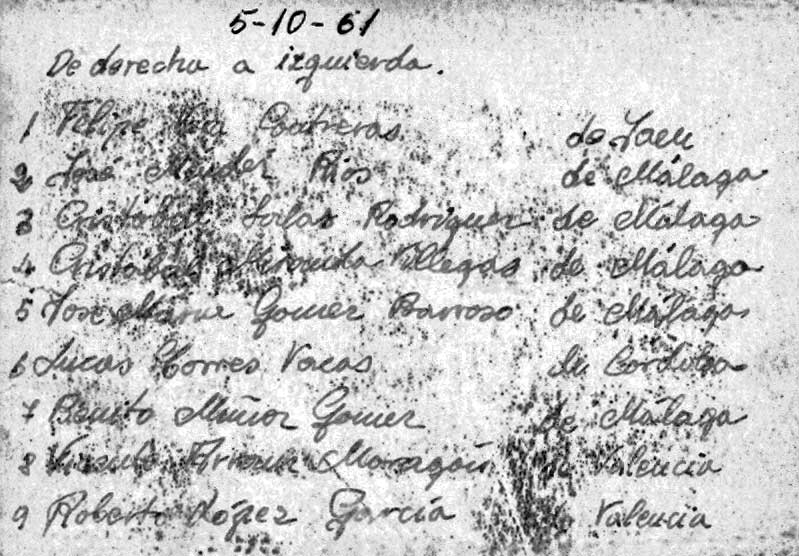 5-10-61
De derecha a izquierda.
1 Felipe Vera Contreras de Jaen
2 José Méndez Rios de Málaga
3 Cristóbal Salas Rodriguez de Málaga
4 Cristóbal Miranda Villegas de Málaga
5 Jose Maria Gomez Barroso de Málaga
6 Lucas Torres Vacas de Cordoba
7 Benito Muñoz Gomez de Málaga
8 Vicente de Valencia
9 Roberto López García de Valencia